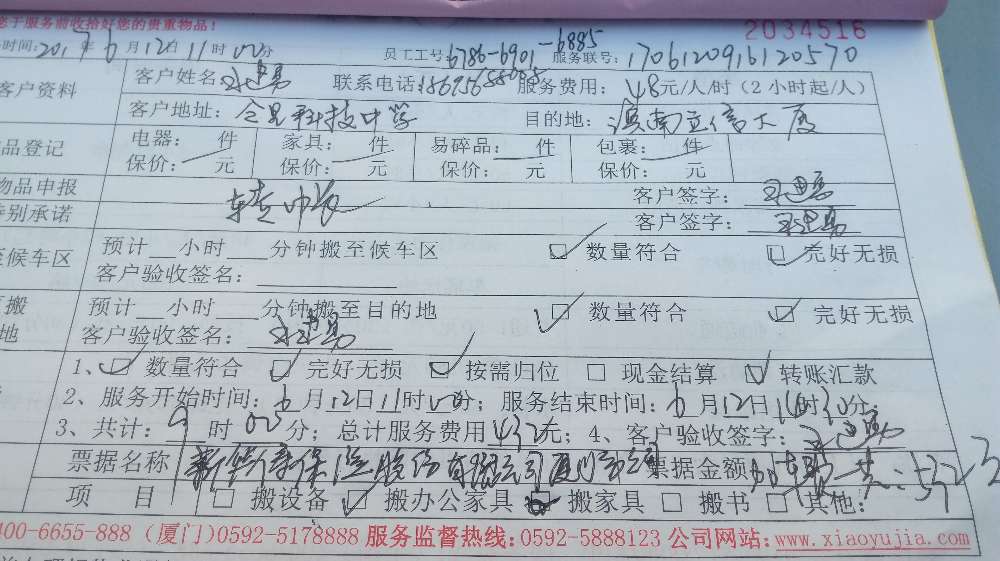 您于服务前收拾好您的贵重物品!
2034516
时间:2017年6月12日11时00分 员工工号6786-6901-6885 服务联号:1706120916120570
客户资料 客户姓名 联系电话 服务费用:48元/人/时(2小时起/人)
客户地址: 科技中学 目的地:滨南立信大厦
品登记 电器: 件 家具: 件 易碎品: 件 包裹: 件
保价: 元 保价: 元 保价: 元 保价: 元
物品申报 客户签字:
特别承诺 客户签字:
至候车区 预计 小时 分钟搬至候车区 数量符合 完好无损
客户验收签名:
搬 预计 小时 分钟搬至目的地 数量符合 完好无损
地 客户验收签名:
1、 数量符合 完好无损 按需归位 现金结算 转账汇款
2、服务开始时间:6月12日11时00分; 服务结束时间:6月12日 时30分;
3、共计:9时00分; 总计服务费用432元; 4、客户验收签字:
票据名称 新华人寿保险股份有限公司厦门分公司 票据金额
项 目 搬设备 搬办公家具 搬家具 搬书 其他:
400-6655-888(厦门)0592-5178888 服务监督热线:0592-5888123 公司网站:www.xiaoyujia.com